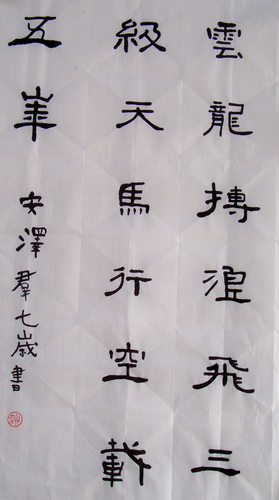 雲龍搏浪飛三
級天馬行空載
五峯
安澤群七歲書